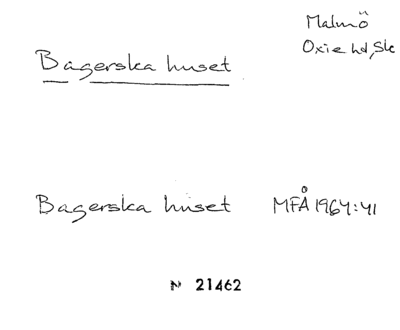 Malmö
Oxie hd, Sk
Bagerska huset
Bagerska huset MFÅ 1964:41
N 21462